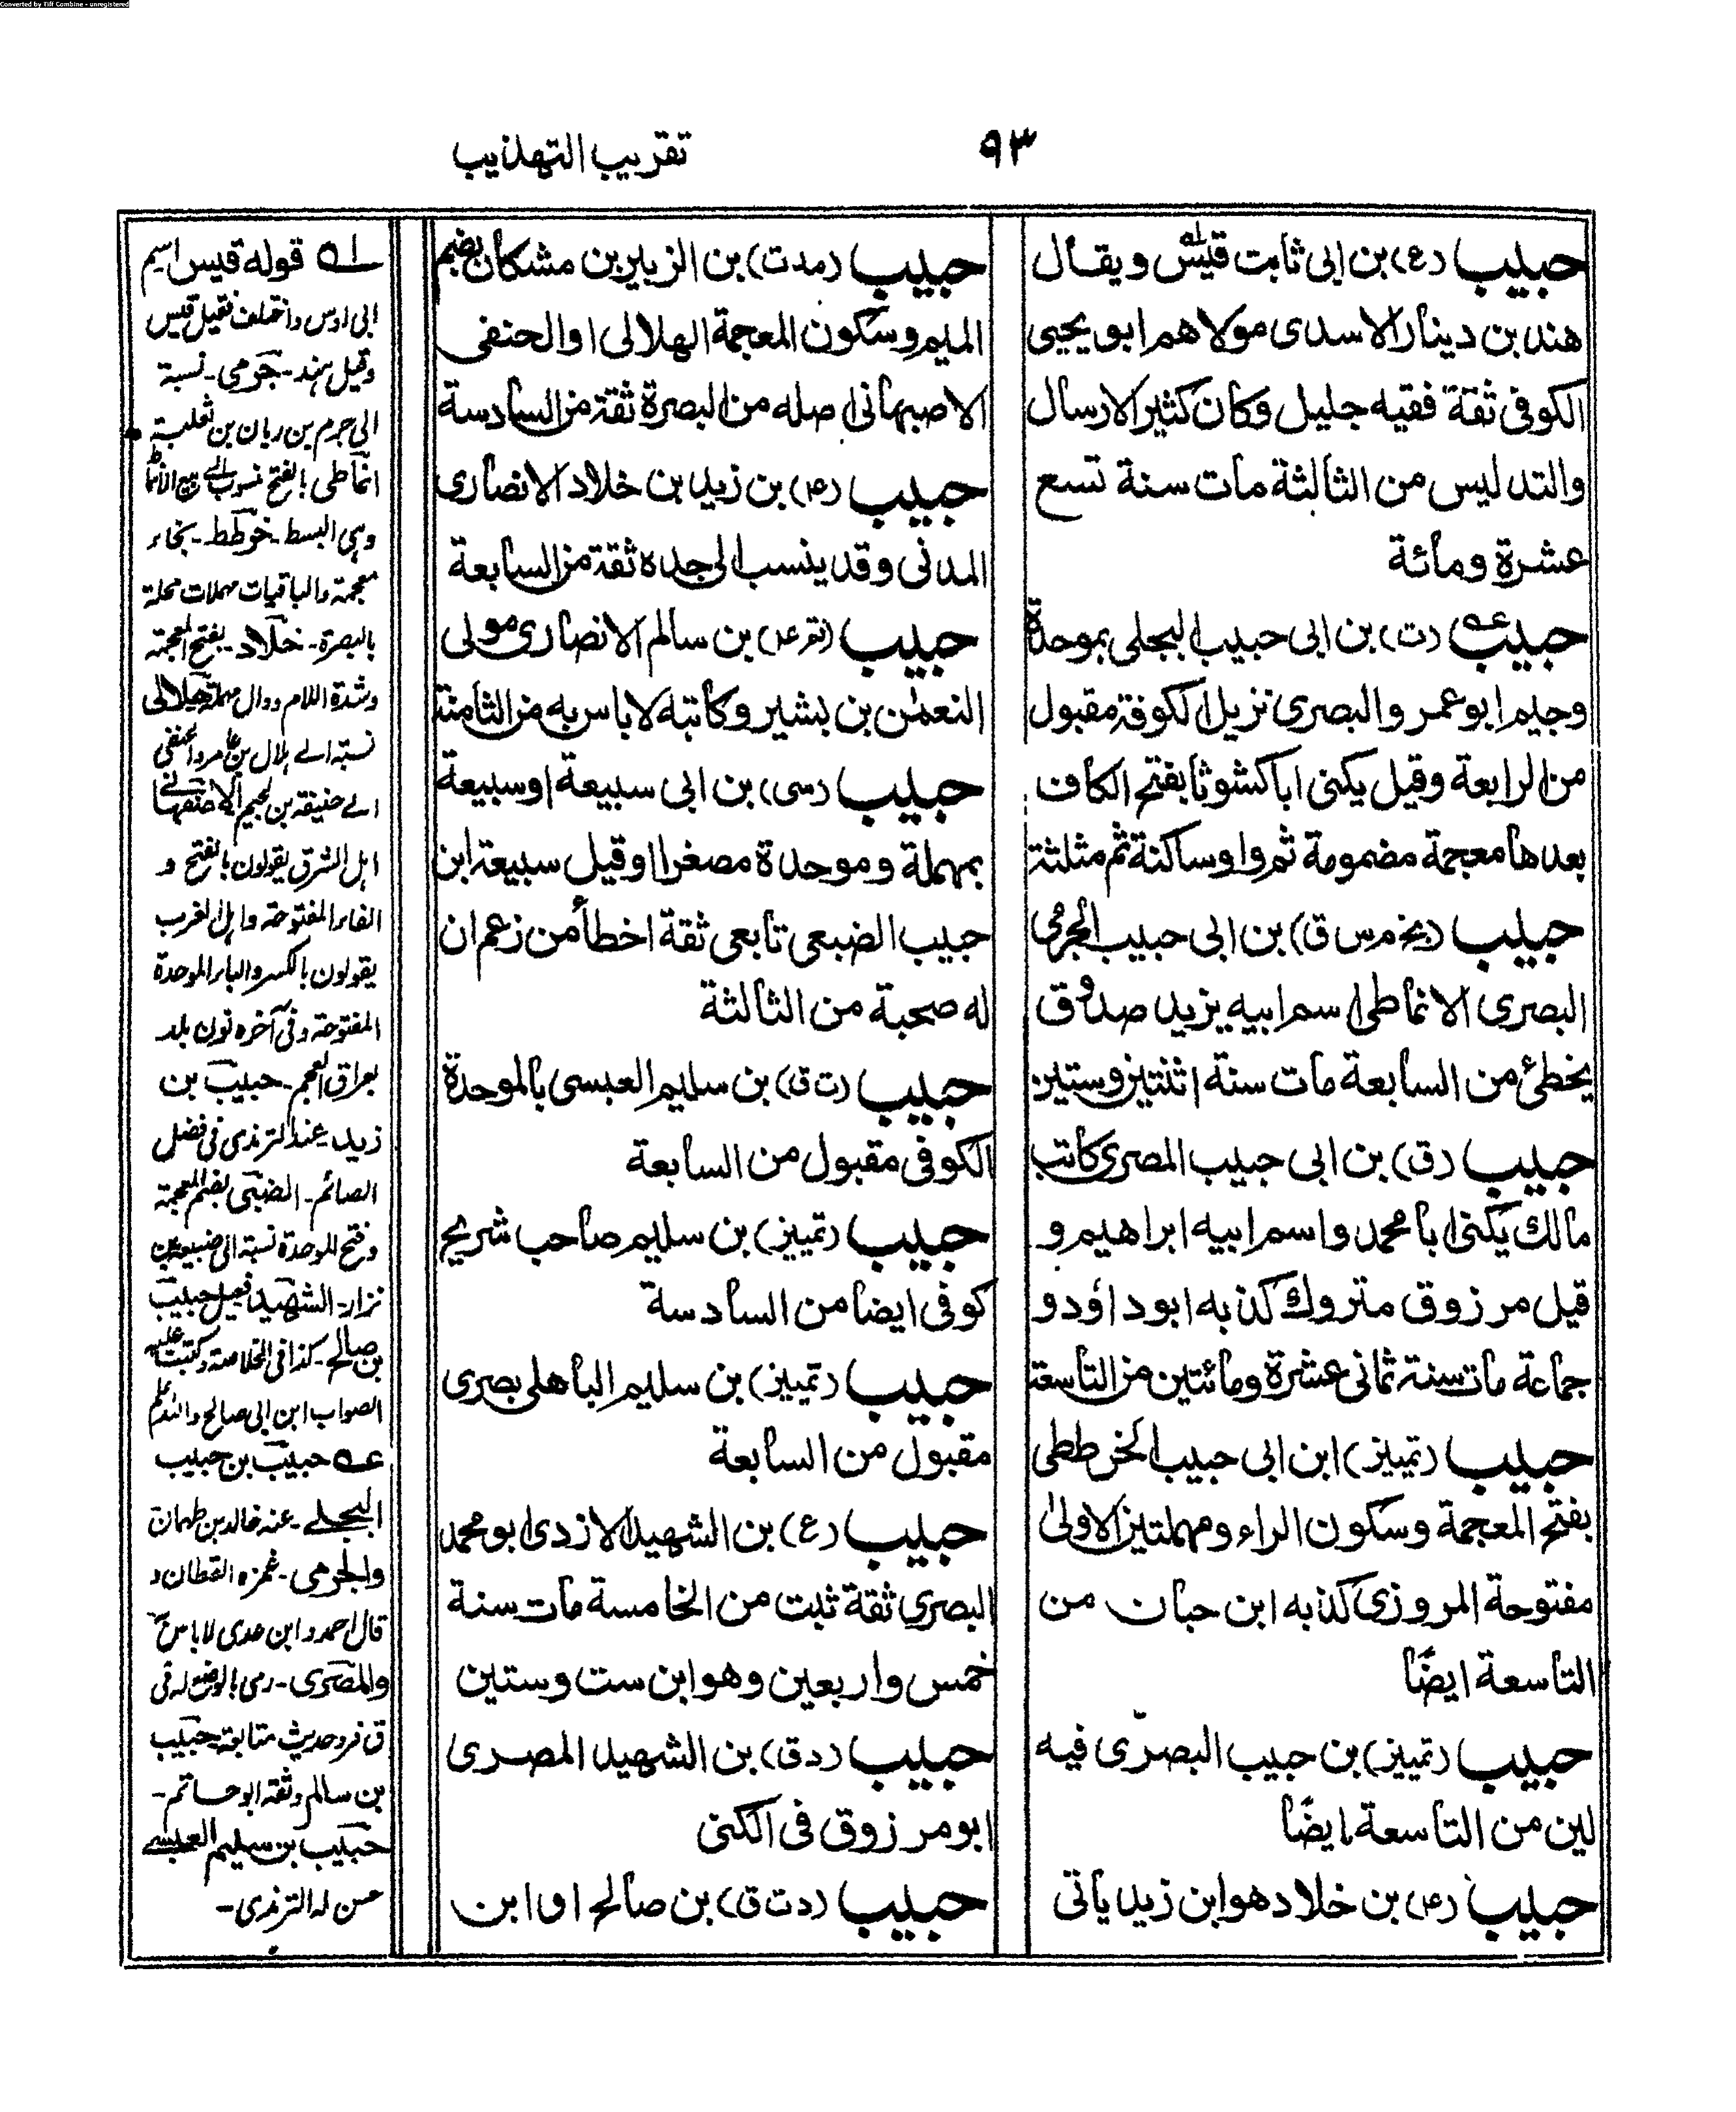 Converted by Tiff Combine - unregistered
٩٣
تقريب التهذيب
حبيب (ع) بن ابى ثابت قيس ويقال
هند بن دينار الاسدى مولاهم ابو يحيى
الكوفى ثقة فقيه جليل وكان كثير الارسال
والتدليس من الثالثة مات سنة تسع
عشرة ومائة
حبيب (ت) بن ابى حبيب البجلى بموحدة
وجيم ابو عمرو البصرى نزيل الكوفة مقبول
من الرابعة وقيل يكنى ابا كشوثا بفتح الكاف
بعدها معجمة مضمومة ثم واو ساكنة ثم مثلثة
حبيب (بخ م س ق) بن ابى حبيب الجرمى
البصرى الانماطى اسم ابيه يزيد صدوق
يخطئ من السابعة مات سنة اثنتين وستين
حبيب (ق) بن ابى حبيب المصرى كاتب
مالك يكنى ابا محمد واسم ابيه ابراهيم و
قيل مرزوق متروك كذبه ابو داؤد و
جماعة مات سنة ثمانى عشرة ومائتين من التاسعة
حبيب (تمييز) ابن ابى حبيب الخرططى
بفتح المعجمة وسكون الراء ومهملتين الاولى
مفتوحة المروزى كذبه ابن حبان من
التاسعة ايضًا
حبيب (تمييز) بن حبيب البصرى فيه
لين من التاسعة ايضًا
حبيب (عه) بن خلاد هو ابن زيد ياتى
حبيب (مد ت) بن الزبير بن مشكان بضم
الميم وسكون المعجمة الهلالى او الحنفى
الاصبهانى اصله من البصرة ثقة من السادسة
حبيب (عه) بن زيد بن خلاد الانصارى
المدنى وقد ينسب الى جده ثقة من السابعة
حبيب (م عه) بن سالم الانصارى مولى
النعمٰن بن بشير وكاتبه لا باس به من الثامنة
حبيب (سى) بن ابى سبيعة او سبيعة
بمهملة وموحدة مصغرا وقيل سبيعة ابن
حبيب الضبعى تابعى ثقة اخطأ من زعم ان
له صحبة من الثالثة
حبيب (ت ق) بن سليم العبسى بالموحدة
الكوفى مقبول من السابعة
حبيب (تمييز) بن سليم صاحب شريح
كوفى ايضا من السادسة
حبيب (تمييز) بن سليم الباهلى بصرى
مقبول من السابعة
حبيب (ع) بن الشهيد الازدى ابو محمد
البصرى ثقة ثبت من الخامسة مات سنة
خمس واربعين وهو ابن ست وستين
حبيب (د ق) بن الشهيد المصرى
ابو مرزوق فى الكنى
حبيب (د ت ق) بن صالح او ابن
له قوله قيس اسم
ابى اوس واختلف فقيل قيس
وقيل هند - جرمى - نسبة
الى جرم بن ريان بن ثعلبة
انماطى بالفتح منسوب الى بيع الانماط
وهى البسط - خرطط - بخاء
معجمة والباقيات مهملات محلة
بالبصرة - خلاد - بفتح المعجمة
وشدة اللام ودال مهملة هلالى
نسبة الى هلال بن عامر والحنفى
الى حنيفة بن لجيم الاصفهانى
اهل الشرق يقولون بالفتح و
الفاء المفتوحة واهل الغرب
يقولون بالكسر والباء الموحدة
المفتوحة وفى آخره نون بلد
بعراق العجم - حبيب بن
زيد - عند الترمذى فى فضل
الصائم - الضبعى بضم المعجمة
وفتح الموحدة نسبة الى ضبيعة بن
نزار - الشهيد قيل حبيب
بن صالح - كذا فى الخلاصة وكتبت عليه
الصواب ابن ابى صالح والله اعلم
عه حبيب بن حبيب
البجلى - عنه خالد بن طهمان
والجرمى - غمزه القطان و
قال احمد وابن عدى لا باس به
والمصرى - رمى بالوضع له فى
ق فرد حديث متابعة حبيب
بن سالم وثقه ابو حاتم -
حبيب بن سليم العبسى
حسن له الترمذى -